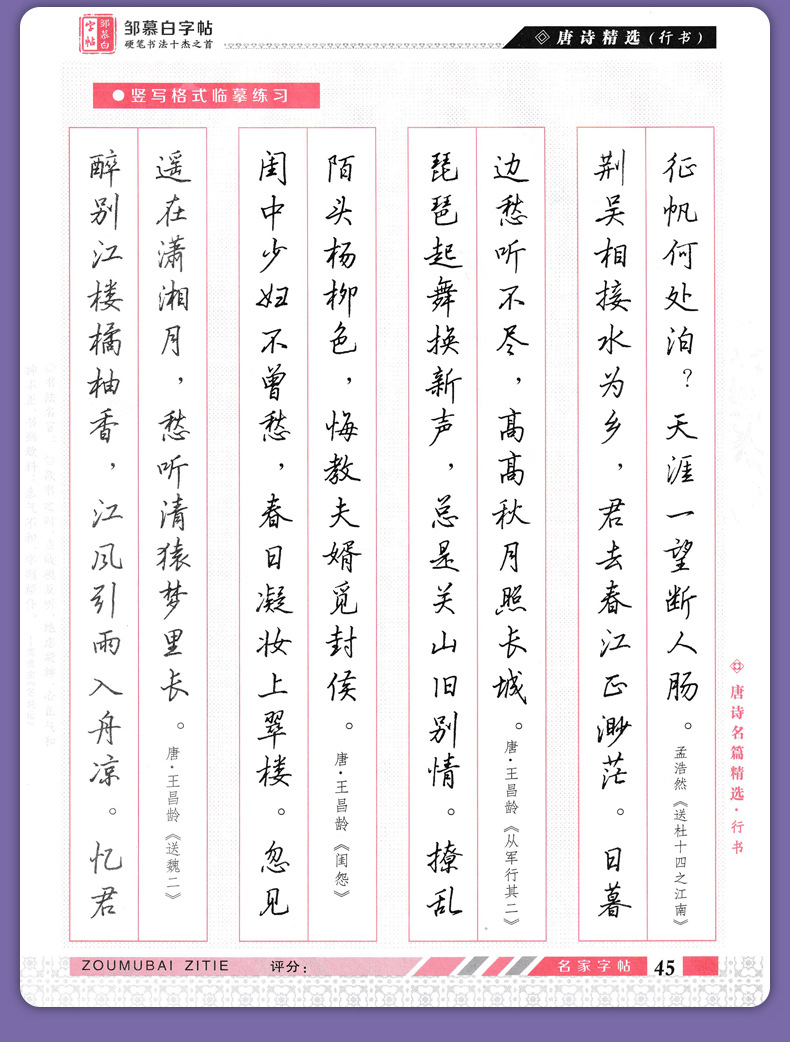 邹慕白字帖
邹慕白字帖
硬笔书法十杰之首
唐诗精选(行书)
竖写格式临摹练习
醉别江楼橘柚香,江风引雨入舟凉。忆君
遥在潇湘月,愁听清猿梦里长。唐·王昌龄《送魏二》
闺中少妇不曾愁,春日凝妆上翠楼。忽见
陌头杨柳色,悔教夫婿觅封侯。唐·王昌龄《闺怨》
琵琶起舞换新声,总是关山旧别情。撩乱
边愁听不尽,高高秋月照长城。唐·王昌龄《从军行其二》
荆吴相接水为乡,君去春江正渺茫。日暮
征帆何处泊?天涯一望断人肠。孟浩然《送杜十四之江南》
唐诗名篇精选·行书
ZOUMUBAI ZITIE
评分:
名家字帖
45